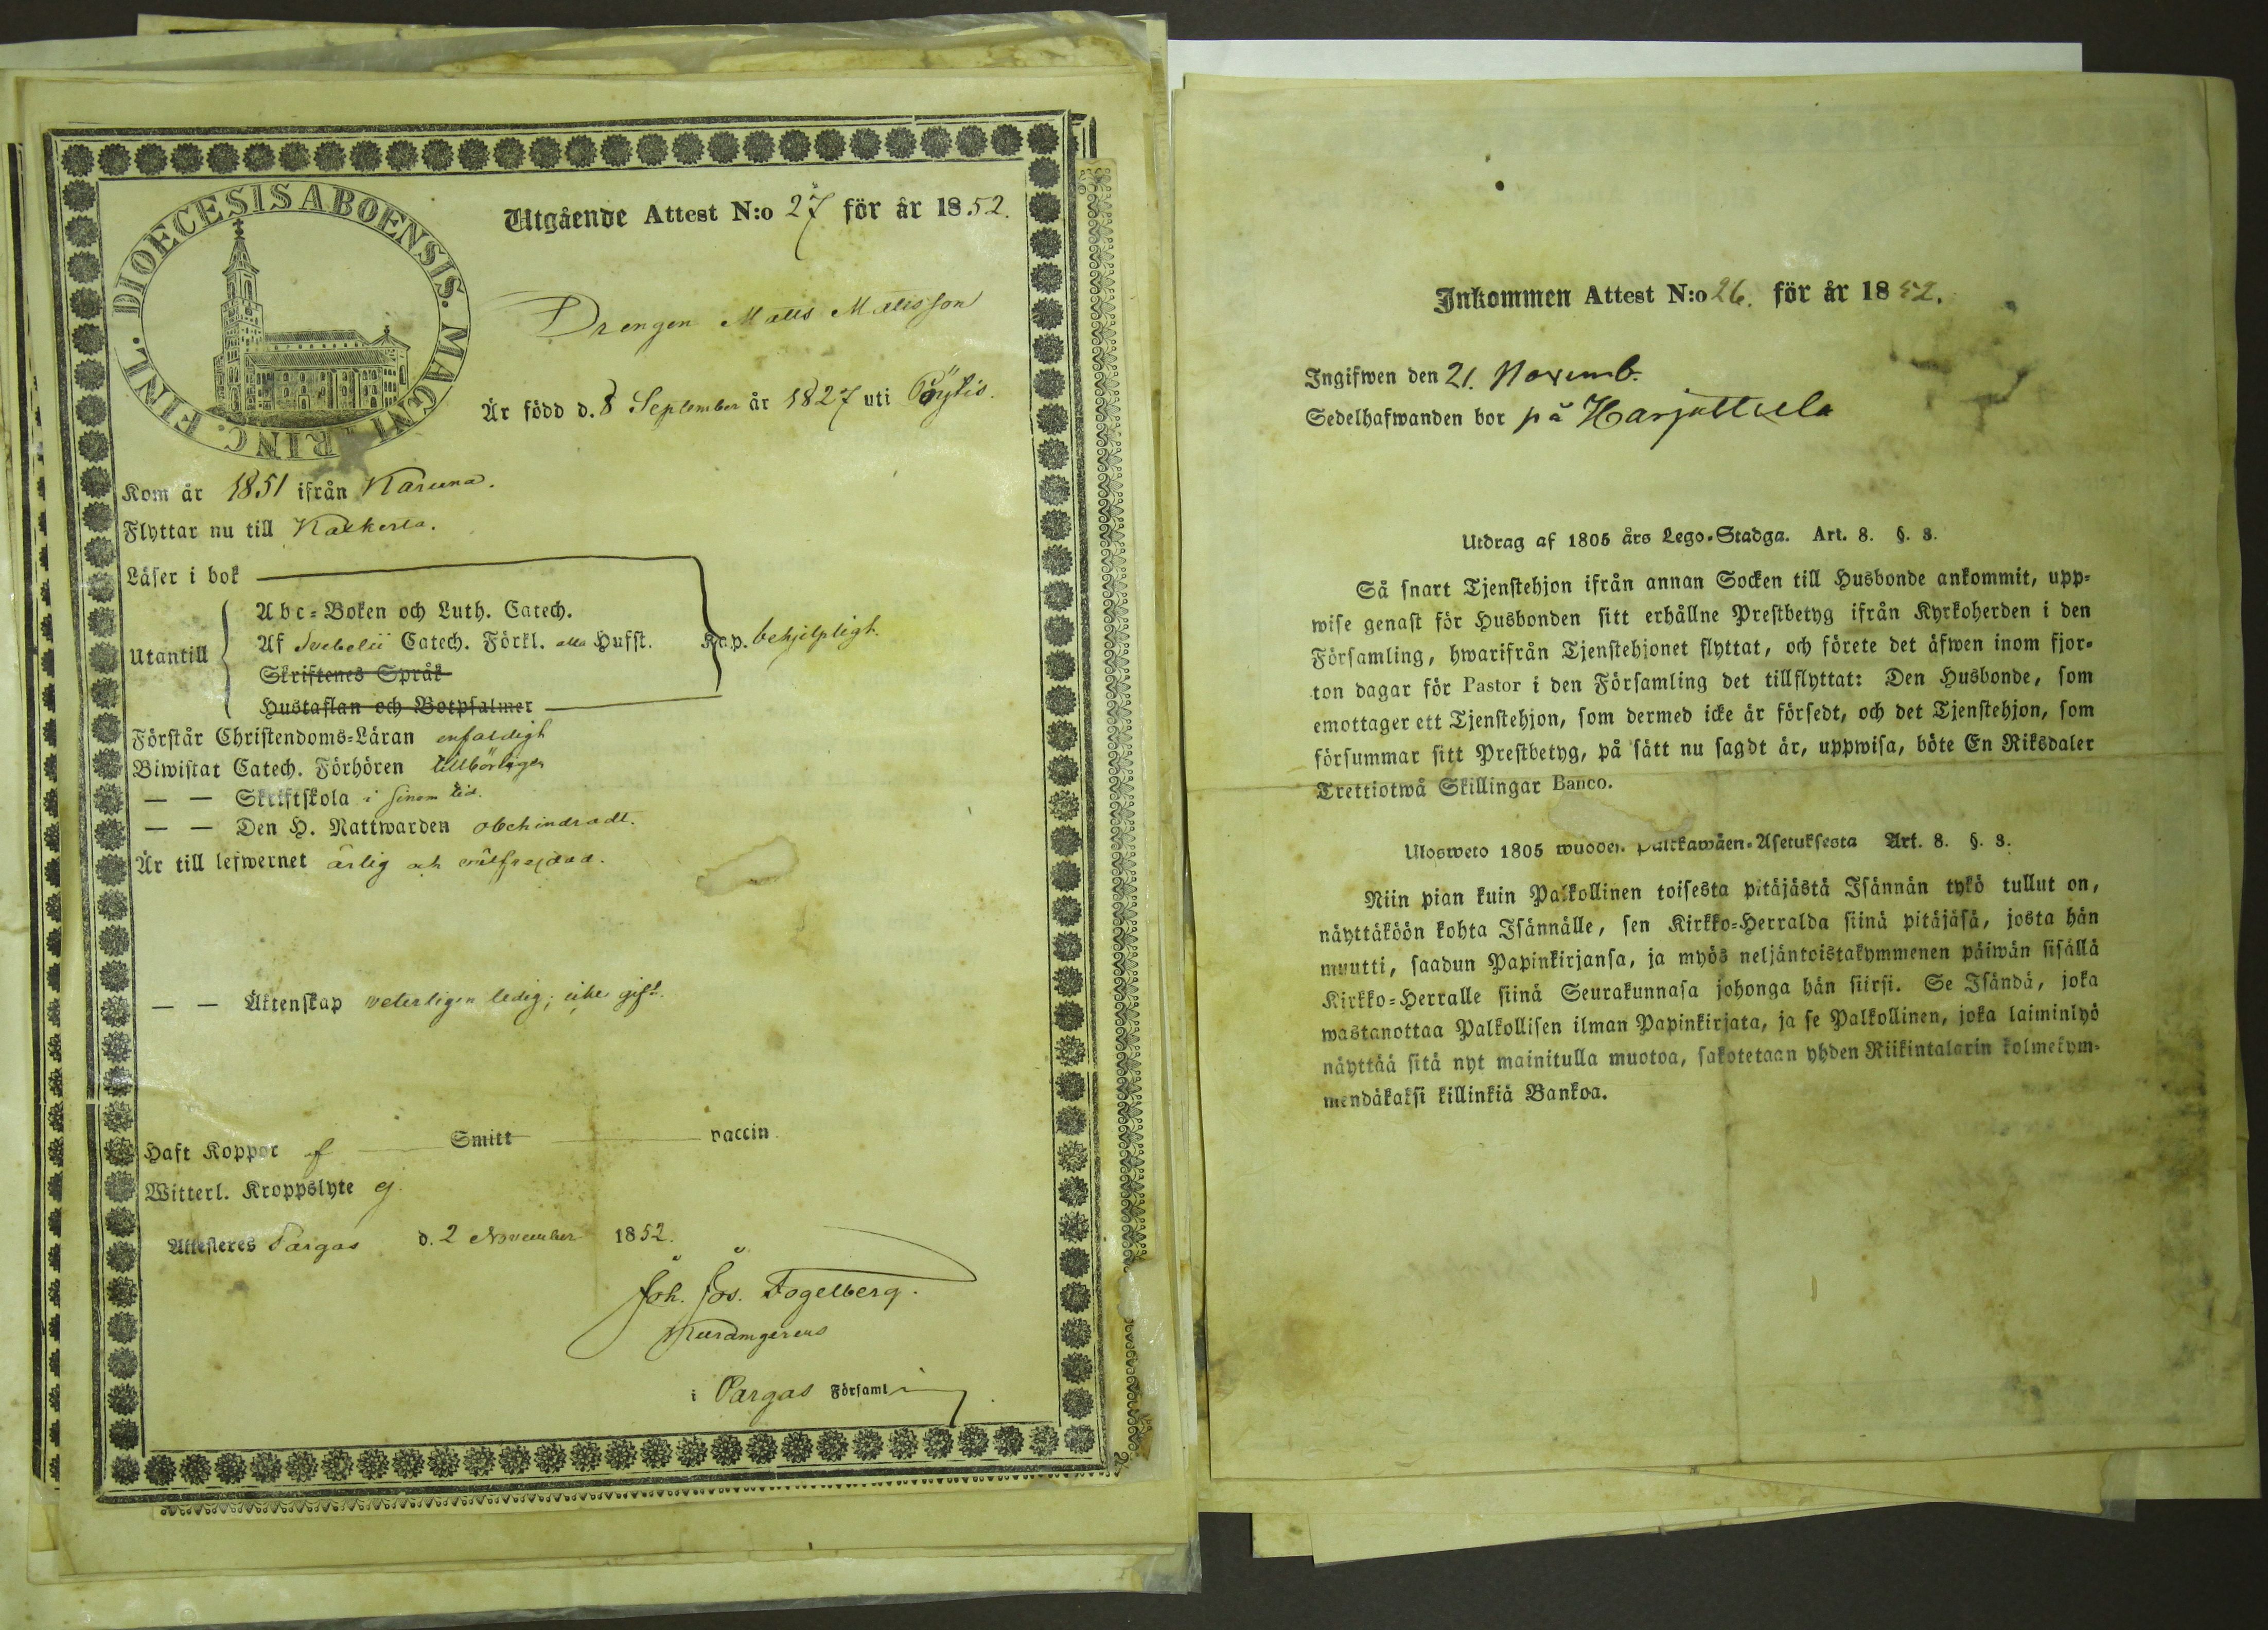 DIOECESIS ABOENSIS. MAGNI PRINC. FINL.
Utgående Attest N:o 27 för år 1852.
Drengen Matts Mattsson
Är född d. 8 September år 1827 uti Pöytis.
Kom år 1851 ifrån Karuna.
Flyttar nu till Kakkerta.
Läser i bok
Utantill
Abc-Boken och Luth. Catech.
Af Svebelii Catech. Förkl. alla Hufst.
Skriftenes Språk
Hustaflan och Botpsalmer
Kap. behjelpligt.
Förstår Christendoms-Läran enfaldigt
Biwistat Catech. Förhören tillbörligen
— — Skriftskola i sinom tid.
— — Den H. Nattwarden obehindradt.
Är till lefwernet ärlig och välfrejdad.
— — Äktenskap veterligen ledig; icke gift.
Haft Koppor Smitt vaccin
Witterl. Kroppslyte ej.
Attesteres Pargas d. 2 November 1852.
Joh. Jos. Fogelberg.
i Pargas Församl
Inkommen Attest N:o 26. för år 1852.
Ingifwen den 21. Novemb.
Sedelhafwanden bor på Harjuttula
Utdrag af 1805 års Lego-Stadga. Art. 8. §. 3.
Så snart Tjenstehjon ifrån annan Socken till Husbonde ankommit, upp-
wise genast för Husbonden sitt erhållne Prestbetyg ifrån Kyrkoherden i den
Församling, hwarifrån Tjenstehjonet flyttat, och förete det äfwen inom fjor-
ton dagar för Pastor i den Församling det tillflyttat: Den Husbonde, som
emottager ett Tjenstehjon, som dermed icke är försedt, och det Tjenstehjon, som
försummar sitt Prestbetyg, på sätt nu sagdt är, uppwisa, böte En Riksdaler
Trettiotwå Skillingar Banco.
Ulosweto 1805 wuoden Palkkawäen-Asetuksesta Art. 8. §. 3.
Niin pian kuin Palkollinen toisesta pitäjästä Isännän tykö tullut on,
näyttäköön kohta Isännälle, sen Kirkko-Herralda siinä pitäjäsä, josta hän
muutti, saadun Papinkirjansa, ja myös neljäntoistakymmenen päiwän sisällä
Kirkko-Herralle siinä Seurakunnasa johonga hän siirsi. Se Isändä, joka
wastanottaa Palkollisen ilman Papinkirjata, ja se Palkollinen, joka laiminlyö
näyttää sitä nyt mainitulla muotoa, sakotetaan yhden Riikintalarin kolmekym-
mendäkaksi killinkiä Bankoa.